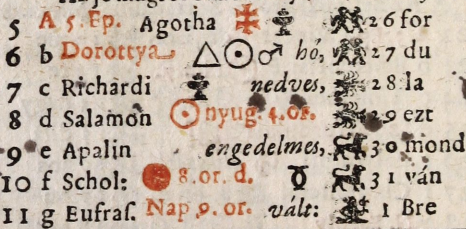 5 A 5. Ep. Agotha 26 for
6 b Dorottya △☉♂ hó, 27 du
7 c Richardi nedves, 28 la
8 d Salamon ☉ nyug. 4. or. 29 ezt
9 e Apalin engedelmes, 30 mond
10 f Schol: 8. or. d. ☿ 31 ván
11 g Eufraſ. Nap 9. or. vált: 1 Bre